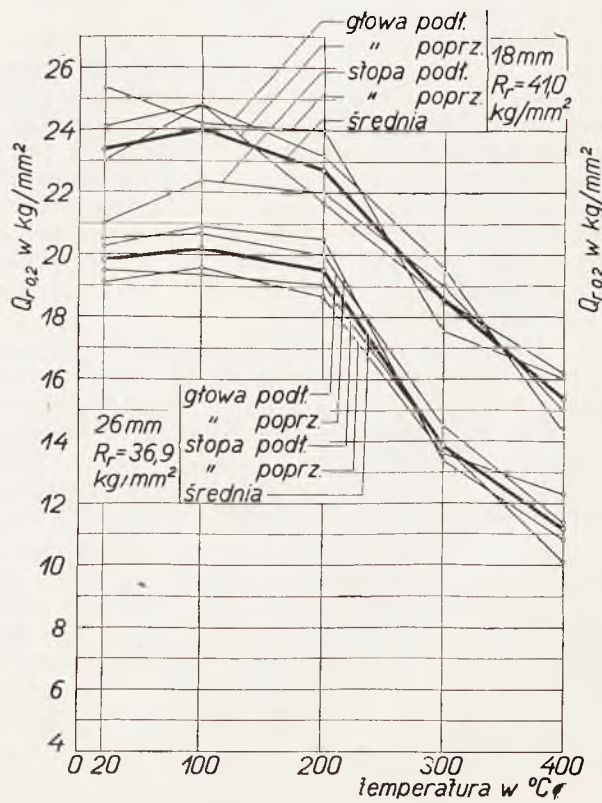 głowa podł.
" poprz.
stopa podł.
" poprz.
średnia
18mm
Rr=41,0
kg/mm²
Qr 0,2 w kg/mm²
26
24
22
20
18
16
14
12
10
8
6
4
Qr 0,2 w kg/mm²
26mm
Rr=36,9
kg/mm²
głowa podł.
" poprz.
stopa podł.
" poprz.
średnia
0 20 100 200 300 400
temperatura w °C